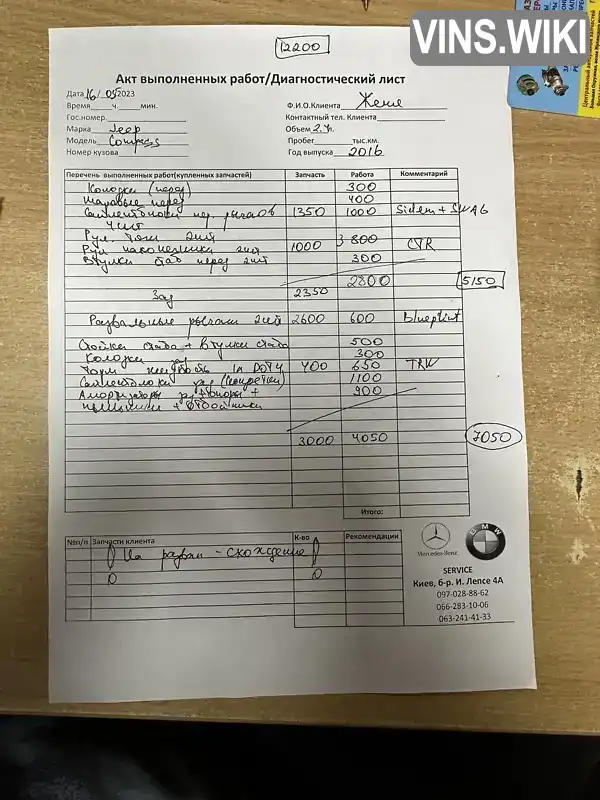 VINS.WIKI
12200
Акт выполненных работ/Диагностический лист
Дата 16/05 2023
Время ч. мин.
Гос.номер.
Марка Jeep
Модель Compass
Номер кузова
Ф.И.О.Клиента Женя
Контактный тел. Клиента
Объем 2.4 л.
Пробег тыс.км.
Год выпуска 2016
Перечень выполненных работ(купленных запчастей) Запчасть Работа Комментарий
Колодки (перед) 300
Шаровые перед 400
Сайлентблоки пер. рычагов 1350 1000 Sidem + SWAG
4 шт
Рул. тяги 2шт
Рул наконечники 2шт 1000 800 CTR
Втулки стаб перед 2шт 300
2800 5150
Зад 2350
Развальные рычаги 2шт 2600 600 blueprint
Стойки стаб + втулки стаб 500
Колодки 300
Торм жидкость 1л DOT4 400 650 TRW
Сайлентблоки 1100
Амортизаторы + опоры + 900
пыльники + отбойники
3000 4050 7050
Итого:
№п/п Запчасти клиента К-во Рекомендации
На развал - схождение
Mercedes-Benz
BMW
SERVICE
Киев, б-р. И. Лепсе 4А
097-028-88-62
066-283-10-06
063-241-41-33